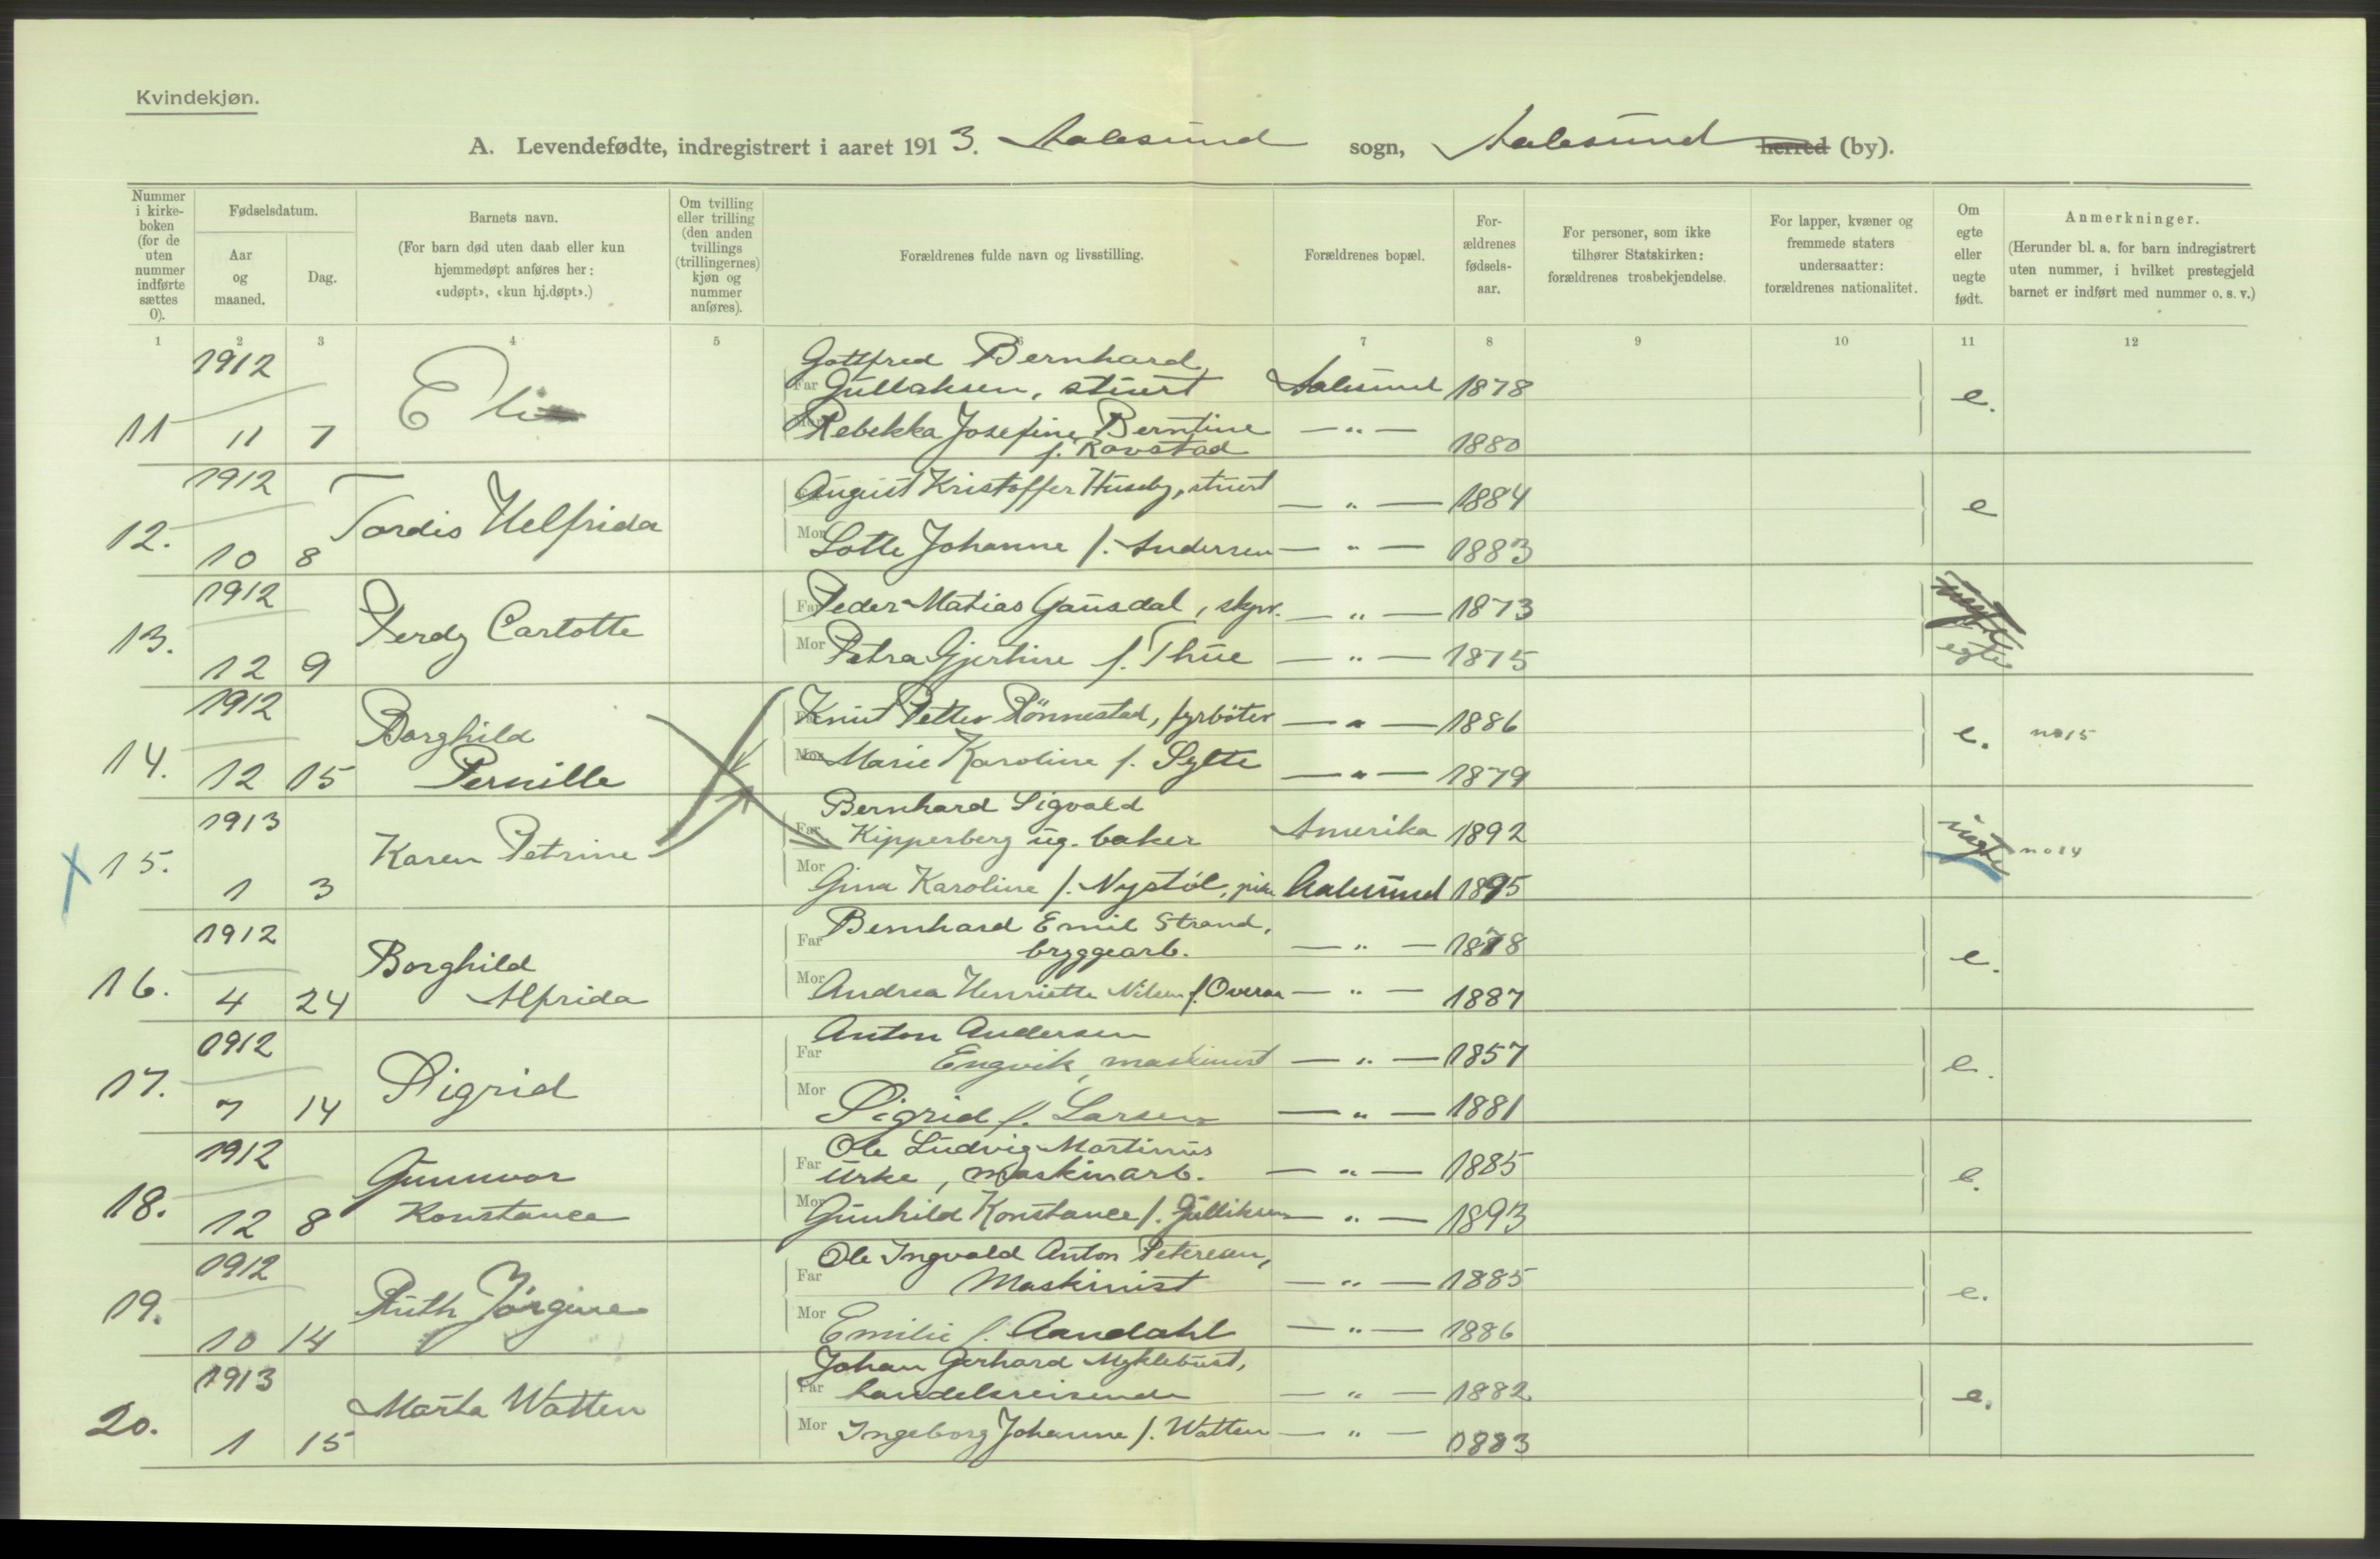 Kvindekjøn.
A. Levendefødte, indregistrert i aaret 1913. Aalesund sogn, Aalesund herred (by).
Nummer i kirkeboken (for de uten nummer indførte sættes 0).
Fødselsdatum.
Aar og maaned.
Dag.
Barnets navn.
(For barn død uten daab eller kun hjemmedøpt anføres her: «udøpt», «kun hj.døpt».)
Om tvilling eller trilling (den anden tvillings (trillingernes) kjøn og nummer anføres).
Forældrenes fulde navn og livsstilling.
Forældrenes bopæl.
Forældrenes fødselsaar.
For personer, som ikke tilhører Statskirken: forældrenes trosbekjendelse.
For lapper, kvæner og fremmede staters undersaatter: forældrenes nationalitet.
Om egte eller uegte født.
Anmerkninger.
(Herunder bl. a. for barn indregistrert uten nummer, i hvilket prestegjeld barnet er indført med nummer o. s. v.)
1 2 3 4 5 6 7 8 9 10 11 12
1912 Gottfred Bernhard
Eli Far Gullaksen, stuert Aalesund 1878 e.
11 11 7 Mor Rebekka Josefine Berntine —„— 1880
f. Ravstad
1912 August Kristoffer Huseby, stuert —„— 1884 e
Tordis Helfrida
12. 10 8 Mor Lotte Johanne f. Andersen —„— 1883
1912 Far Peder Matias Gausdal, skpr. —„— 1873
Perdy Carlotte egte
13. 12 9 Mor Petra Gjertine f. Thue —„— 1875
1912 Borghild Knut Petter Rönnestad, fyrböter —„— 1886 e. no 15
14. 12 15 Pernille Mor Marie Karoline f. Sylte —„— 1879
1913 Bernhard Sigvald
Karen Petrine Far Kipperberg ug. baker Amerika 1892 uegte no 14
15. 1 3 Mor Gina Karoline f. Nystöl, pike Aalesund 1895
1912 Borghild Far Bernhard Emil Strand,
bryggearb. —„— 1878 e.
16. 4 24 Alfrida Mor Andrea Henriette Nilsen f. Overaa —„— 1887
1912 Anton Andersen
Sigrid Far Engvik, maskinist —„— 1857 e.
17. 7 14 Mor Sigrid f. Larsen —„— 1881
1912 Gunnvor Ole Ludvig Martinus
Far Urke, maskinarb. —„— 1885 e.
18. 12 8 Konstance Mor Gunhild Konstance f. Gulliksen —„— 1893
1912 Ole Ingvald Anton Petersen,
Ruth Jörgine Far Maskinist —„— 1885 e.
19. 10 14 Mor Emilie f. Aandahl —„— 1886
1913 Johan Gerhard Myklebust,
Marta Watten Far handelsreisende —„— 1882 e.
20. 1 15 Mor Ingeborg Johanne f. Watten —„— 1883